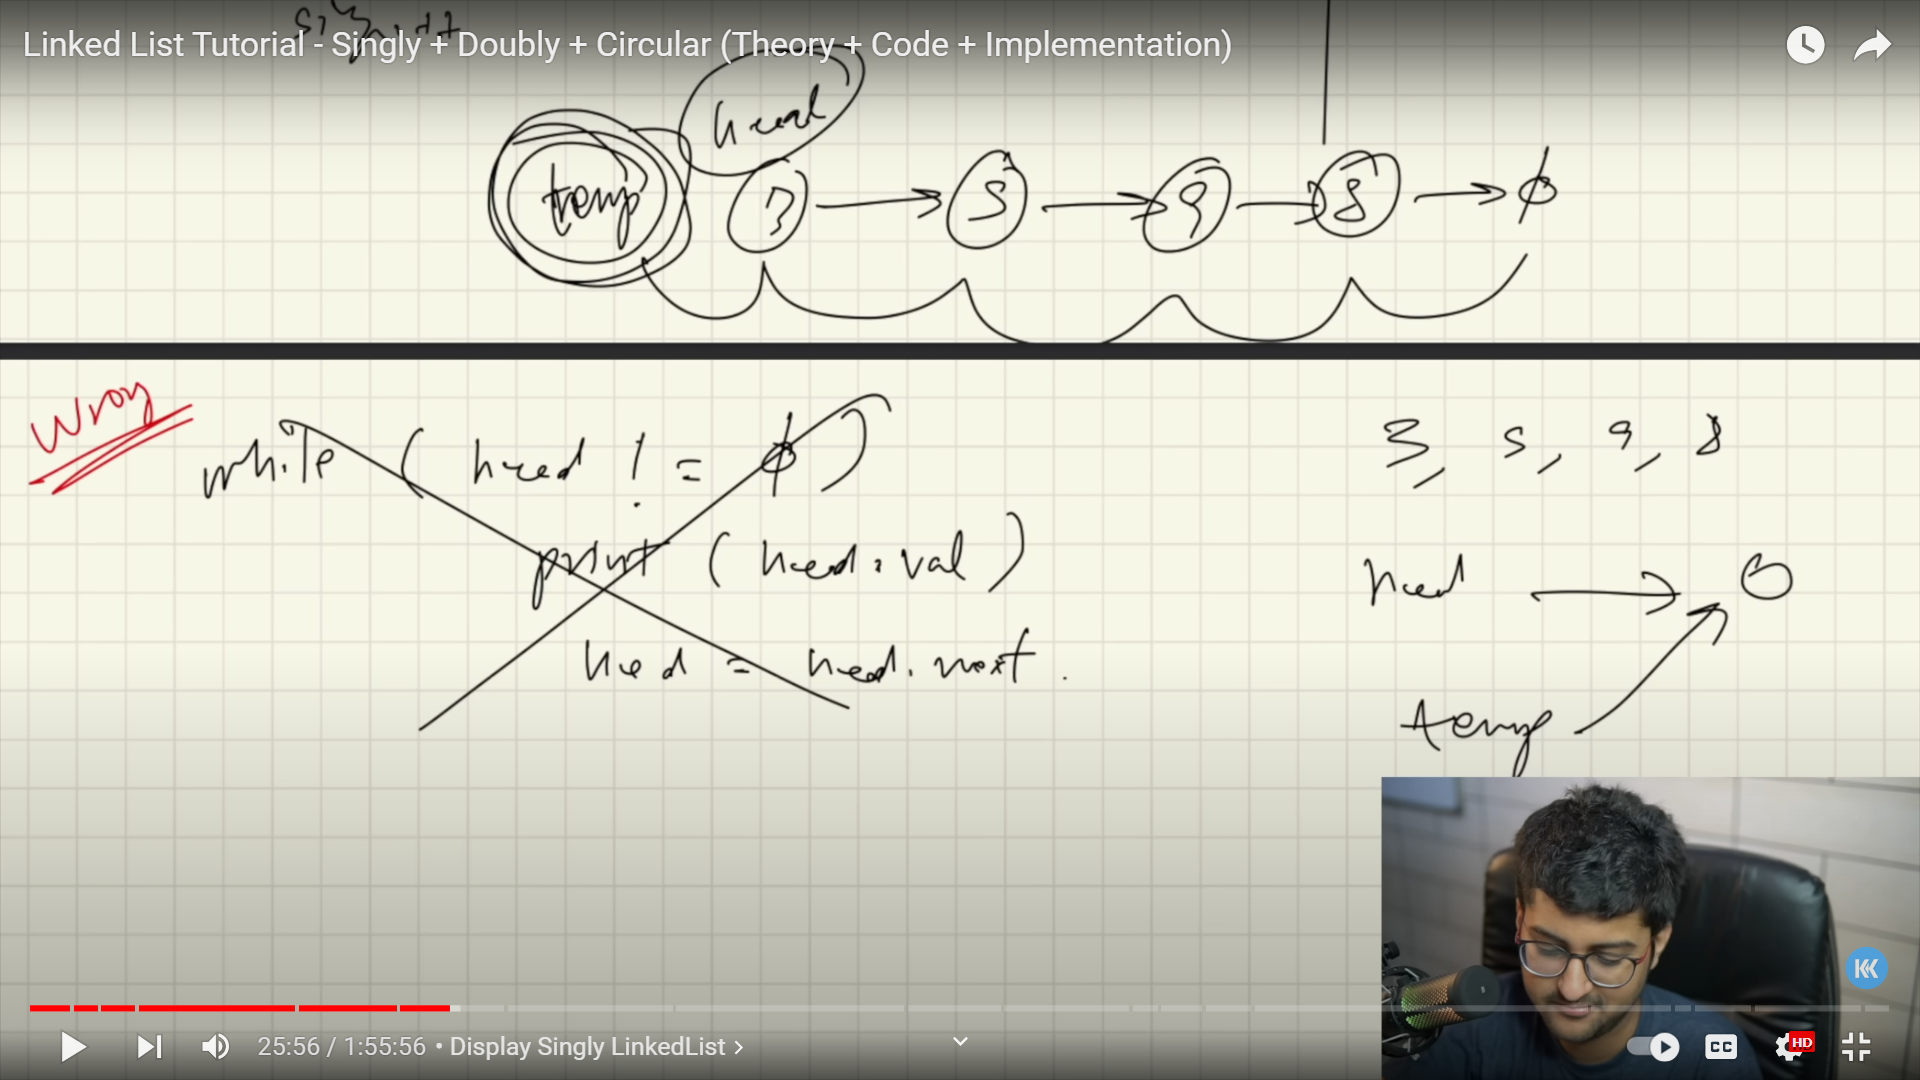 Linked List Tutorial - Singly + Doubly + Circular (Theory + Code + Implementation)
head
temp 3 5 9 8 ∅
Wrong
while (head != ∅)
print (head.val)
head = head.next.
3, 5, 9, 8
head
temp
25:56 / 1:55:56 • Display Singly LinkedList >
CC
HD